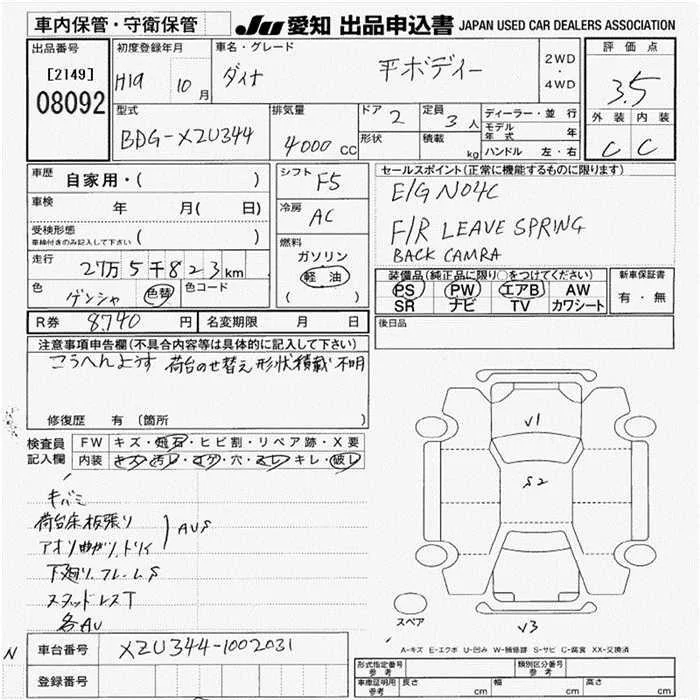 車内保管・守衛保管 JU 愛知 出品申込書 JAPAN USED CAR DEALERS ASSOCIATION
出品番号 初度登録年月 車名・グレード 評価点
[2149] H19 10月 ダイナ 平ボディー 2WD・4WD 3.5
08092
型式 排気量 ドア 2 定員 3人 ディーラー・並行 外装 内装
BDG-XZU344 4000CC 形状 積載 kg モデル年式 年 C C
ハンドル 左・右
車歴 自家用・( ) シフト F5 セールスポイント(正常に機能するものに限ります)
車検 年 月( 日) 冷房 AC E/G N04C
受検形態 ( ) F/R LEAVE SPRING
車検付きのみ記入して下さい BACK CAMRA
走行 27万5千823km 燃料 ガソリン 軽油 ( )
色 ゲンシャ 色替 色コード
装備品(純正品に限り○をつけてください) 新車保証書
PS PW エアB AW 有・無
SR ナビ TV カワシート
R券 8740円 名変期限 月 日 後日品
注意事項申告欄(不具合内容等は具体的に記入して下さい)
こうへんようす 荷台のせ替え 形状積載 不明
修復歴 有 (箇所 )
検査員記入欄 FW キズ・飛石・ヒビ割・リペア跡・X要
内装 キズ・汚レ・コゲ・穴・スレ・キレ・破レ
キバミ
荷台床板張り
アオリ曲がり、トリイ AUS
下廻り、フレームS
スタッドレスT
各AU
V1
S2
V3
スペア
A-キズ E-エクボ U-凹み W-補修跡 S-サビ C-腐食 XX-交換済
N 車台番号 XZU344-1002031
登録番号
形式指定番号 参考 類別区分番号 参考
車庫証明用 参考 長さ cm 幅 cm 高さ cm